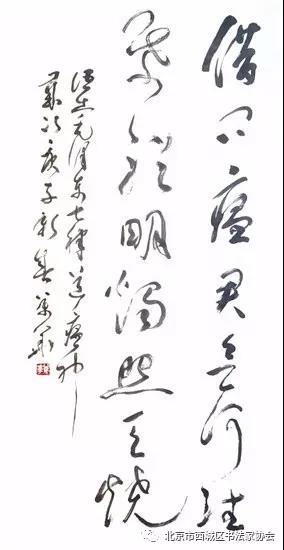 借问瘟君欲何往
纸船明烛照天烧
语出毛泽东七律送瘟神
岁次庚子新春
北京市西城区书法家协会